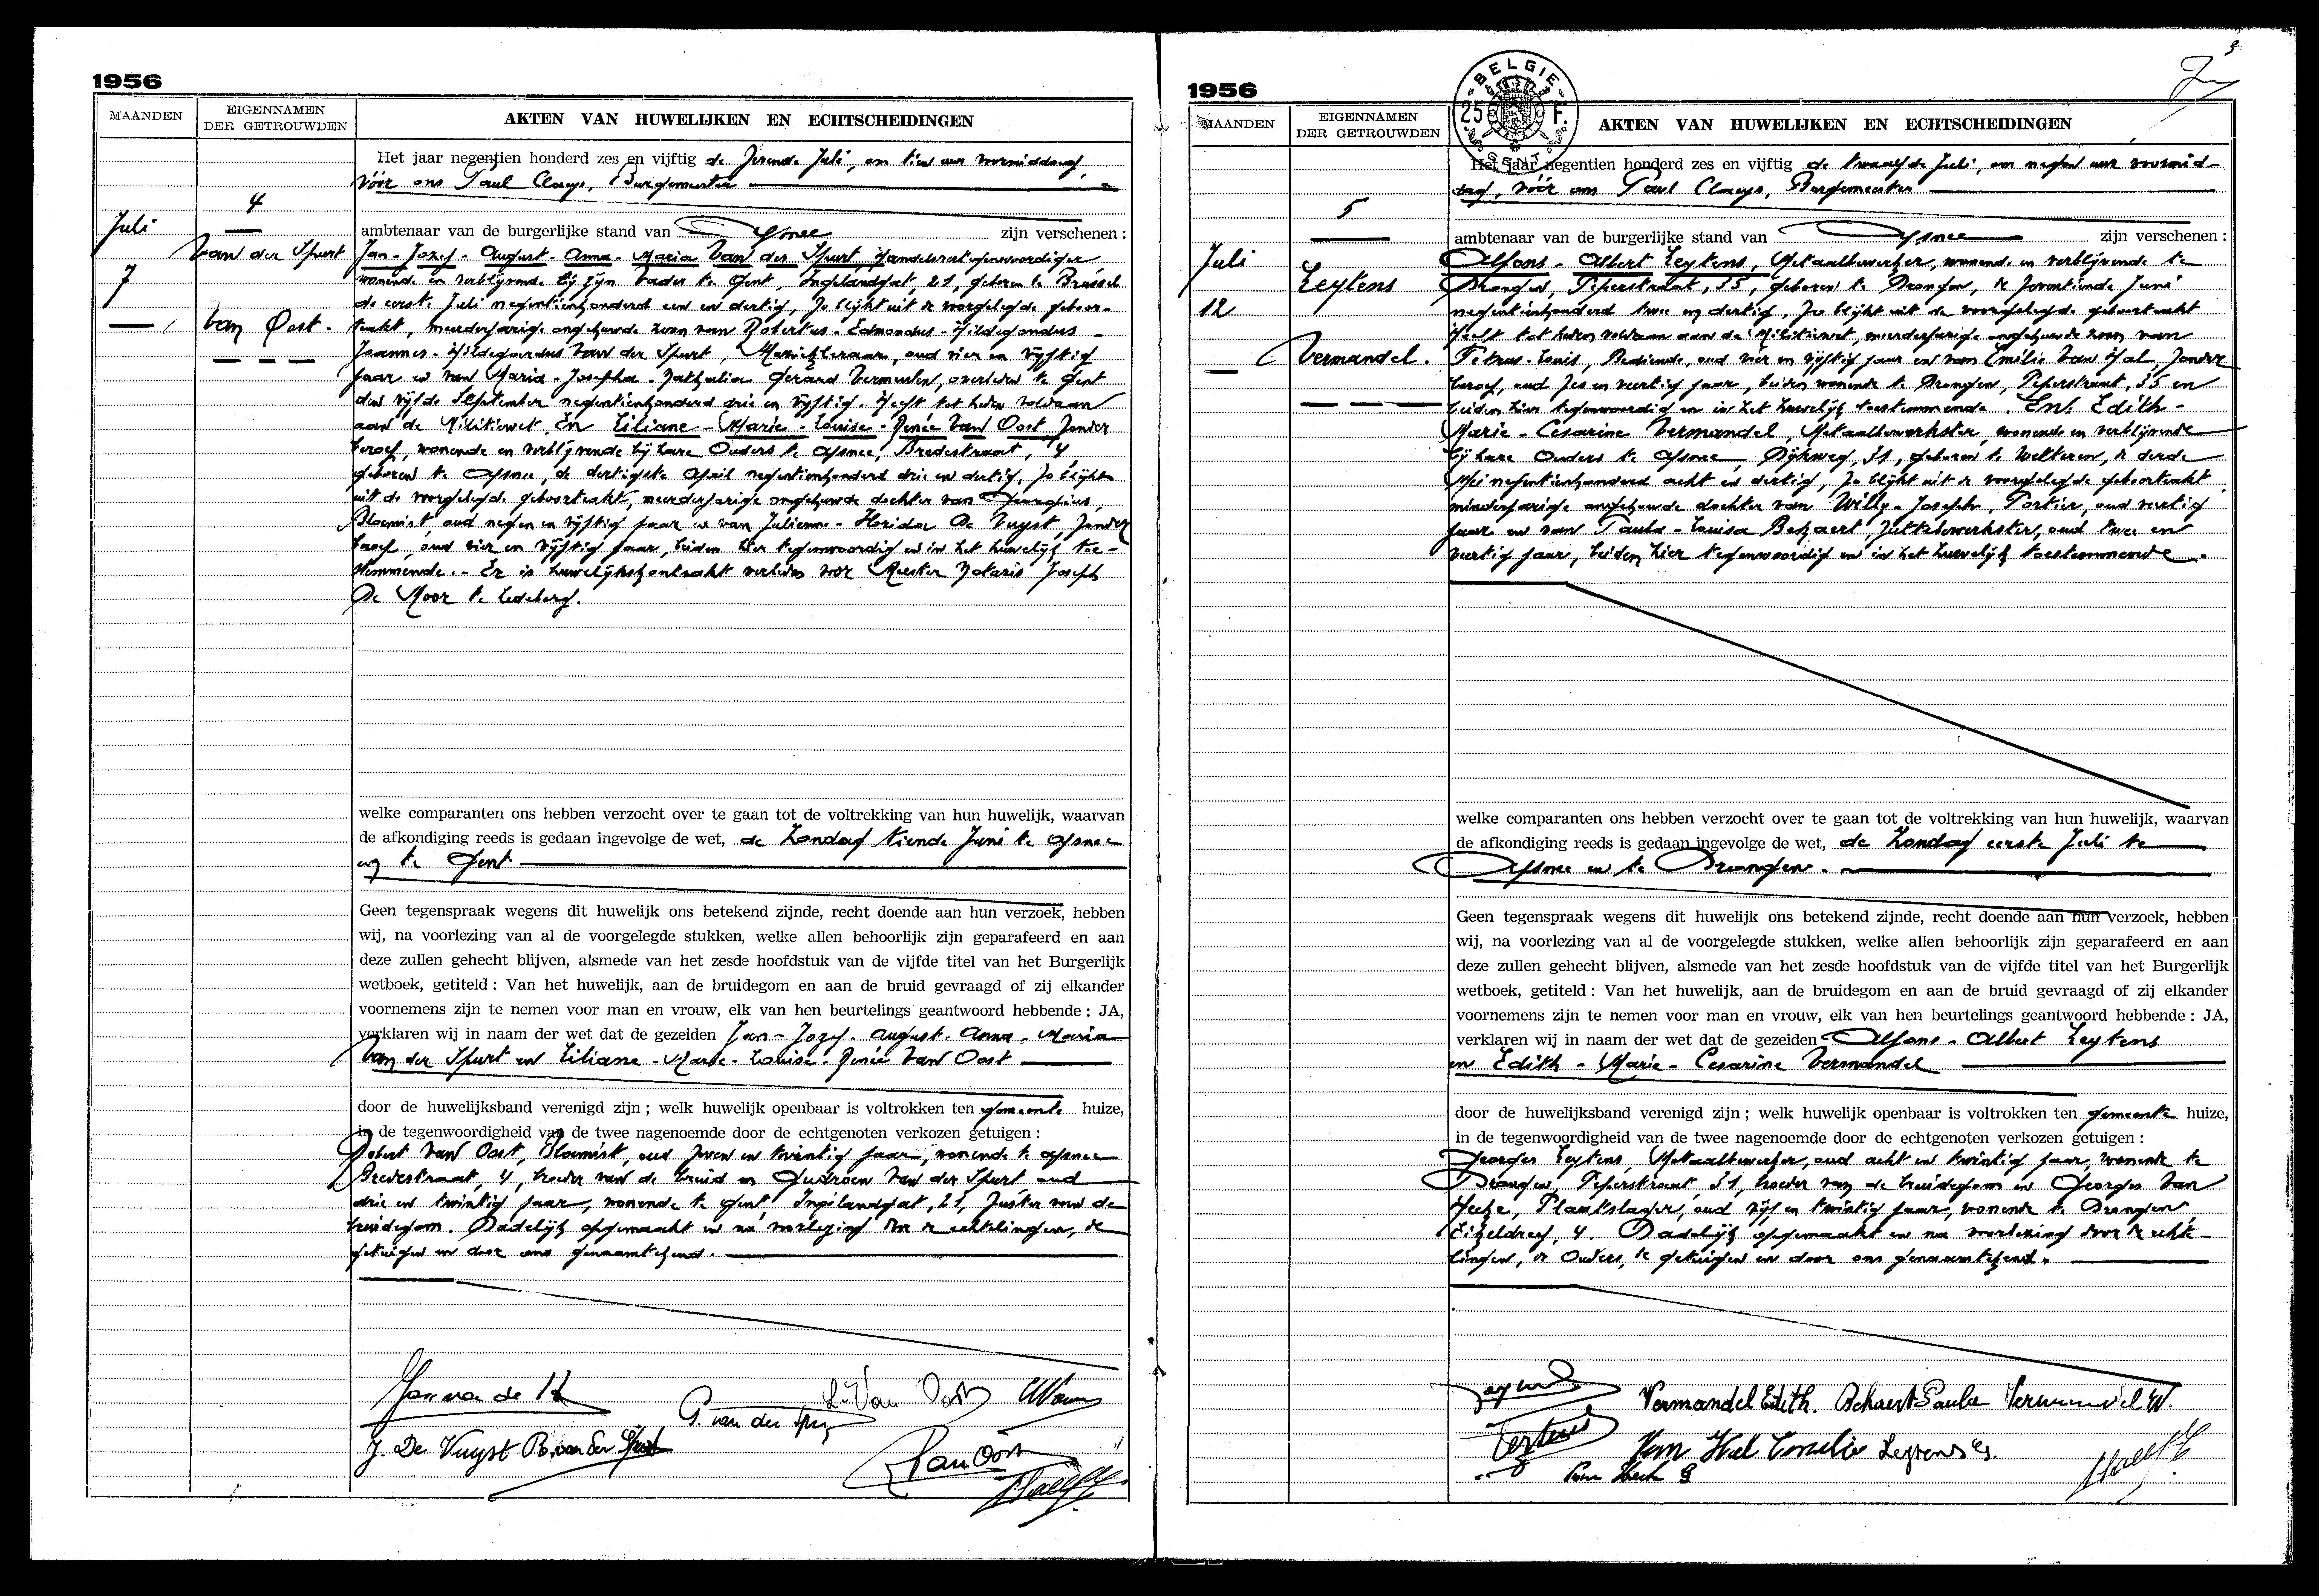 1956
MAANDEN
EIGENNAMEN
DER GETROUWDEN
AKTEN VAN HUWELIJKEN EN ECHTSCHEIDINGEN
4
Juli
7
Van der Spurt
Van Oost.
Het jaar negentien honderd zes en vijftig de zevende Juli, om tien uur voormiddag,
vóór ons Paul Claeys, Burgemeester
ambtenaar van de burgerlijke stand van Afsnee zijn verschenen :
Jan - Jozef - August - Anna - Maria Van der Spurt, Handelsvertegenwoordiger
wonende en verblijvende bij zijn Vader te Gent, Ingelandgat, 21, geboren te Brussel
de eerste Juli negentienhonderd een en dertig, zo blijkt uit de voorgelegde geboor-
teakt, meerderjarige ongehuwde zoon van Robertus - Edmondus - Hildegondus -
Joannes - Hildegardus Van der Spurt, Muziekleraar, oud vier en vijftig
jaar en van Maria - Josepha - Nathalia Gerard Vermeulen, overleden te Gent
den vijfde September negentienhonderd drie en vijftig. Heeft tot heden voldaan
aan de Militiewet, En Liliane - Marie - Louise - Renée Van Oost, zonder
beroep, wonende en verblijvende bij hare Ouders te Afsnee, Bredestraat, 4,
geboren te Afsnee, de dertigste April negentienhonderd drie en dertig, zo blijkt
uit de voorgelegde geboorteakt, meerderjarige ongehuwde dochter van Georgius,
Bloemist, oud negen en vijftig jaar en van Julienne - Florida De Vuyst, zonder
beroep, oud vier en vijftig jaar, beiden hier tegenwoordig en in het huwelijk toe-
stemmende. - Er is huwelijkskontrakt verleden voor Meester Notaris Joseph
De Moor te Ledeberg.
welke comparanten ons hebben verzocht over te gaan tot de voltrekking van hun huwelijk, waarvan
de afkondiging reeds is gedaan ingevolge de wet, de Zondag tiende Juni te Afsnee
en te Gent
Geen tegenspraak wegens dit huwelijk ons betekend zijnde, recht doende aan hun verzoek, hebben
wij, na voorlezing van al de voorgelegde stukken, welke allen behoorlijk zijn geparafeerd en aan
deze zullen gehecht blijven, alsmede van het zesde hoofdstuk van de vijfde titel van het Burgerlijk
wetboek, getiteld : Van het huwelijk, aan de bruidegom en aan de bruid gevraagd of zij elkander
voornemens zijn te nemen voor man en vrouw, elk van hen beurtelings geantwoord hebbende : JA,
verklaren wij in naam der wet dat de gezeiden Jan - Jozef - August - Anna - Maria
Van der Spurt en Liliane - Marie - Louise - Renée Van Oost
door de huwelijksband verenigd zijn ; welk huwelijk openbaar is voltrokken ten gemeente huize,
in de tegenwoordigheid van de twee nagenoemde door de echtgenoten verkozen getuigen :
Robert Van Oost, Bloemist, oud zeven en twintig jaar, wonende te Afsnee
Bredestraat, 4, broeder van de bruid en Gudroen Van der Spurt oud
drie en twintig jaar, wonende te Gent, Ingelandgat, 21, zuster van de
bruidegom. Dadelijk opgemaakt en na voorlezing door de echtelingen, de
getuigen en door ons genaamtekend.
L. Van Oost
G. van der Spurt
J. De Vuyst R. van der Spurt
R Van Oost
1956
MAANDEN
EIGENNAMEN
DER GETROUWDEN
BELGIE
25 F.
AKTEN VAN HUWELIJKEN EN ECHTSCHEIDINGEN
5
Juli
12
Leytens
Vermandel.
Het jaar negentien honderd zes en vijftig de twaalfde Juli, om negen uur voormid-
dag, vóór ons Paul Claeys, Burgemeester
ambtenaar van de burgerlijke stand van Afsnee zijn verschenen :
Alfons - Albert Leytens, Metaalbewerker, wonende en verblijvende te
Drongen, Peperstraat, 35, geboren te Drongen, de zeventiende Juni
negentienhonderd twee en dertig, zo blijkt uit de voorgelegde geboorteakt
Heeft tot heden voldaan aan de Militiewet, meerderjarige ongehuwde zoon van
Petrus - Louis, Bediende, oud vier en vijftig jaar en van Emilie Van Hal, zonder
beroep, oud zes en veertig jaar, beiden wonende te Drongen, Peperstraat, 35 en
beiden hier tegenwoordig en in het huwelijk toestemmende. En Edith -
Marie - Cesarine Vermandel, Metaalbewerkster, wonende en verblijvende
bij hare Ouders te Afsnee, Dijkweg, 31, geboren te Wetteren, de derde
Mei negentienhonderd acht en dertig, zo blijkt uit de voorgelegde geboorteakt,
minderjarige ongehuwde dochter van Willy - Joseph, Portier, oud veertig
jaar en van Paula - Louisa Bekaert, Juttebewerkster, oud twee en
veertig jaar, beiden hier tegenwoordig en in het huwelijk toestemmende.
welke comparanten ons hebben verzocht over te gaan tot de voltrekking van hun huwelijk, waarvan
de afkondiging reeds is gedaan ingevolge de wet, de Zondag eerste Juli te
Afsnee en te Drongen.
Geen tegenspraak wegens dit huwelijk ons betekend zijnde, recht doende aan hun verzoek, hebben
wij, na voorlezing van al de voorgelegde stukken, welke allen behoorlijk zijn geparafeerd en aan
deze zullen gehecht blijven, alsmede van het zesde hoofdstuk van de vijfde titel van het Burgerlijk
wetboek, getiteld : Van het huwelijk, aan de bruidegom en aan de bruid gevraagd of zij elkander
voornemens zijn te nemen voor man en vrouw, elk van hen beurtelings geantwoord hebbende : JA,
verklaren wij in naam der wet dat de gezeiden Alfons - Albert Leytens
en Edith - Marie - Cesarine Vermandel
door de huwelijksband verenigd zijn ; welk huwelijk openbaar is voltrokken ten gemeente huize,
in de tegenwoordigheid van de twee nagenoemde door de echtgenoten verkozen getuigen :
Georges Leytens, Metaalbewerker, oud acht en twintig jaar, wonende te
Drongen, Peperstraat, 31, broeder van de bruidegom en Georges Van
Hecke, Plaatslager, oud vijf en twintig jaar, wonende te Drongen
Eikeldreef, 4. Dadelijk opgemaakt en na voorlezing door de echte-
lingen, de Ouders, de getuigen en door ons genaamtekend.
Vermandel Edith. Bekaert Paula Vermandel W.
Leytens Van Hal Emilie Leytens G.
Van Hecke G